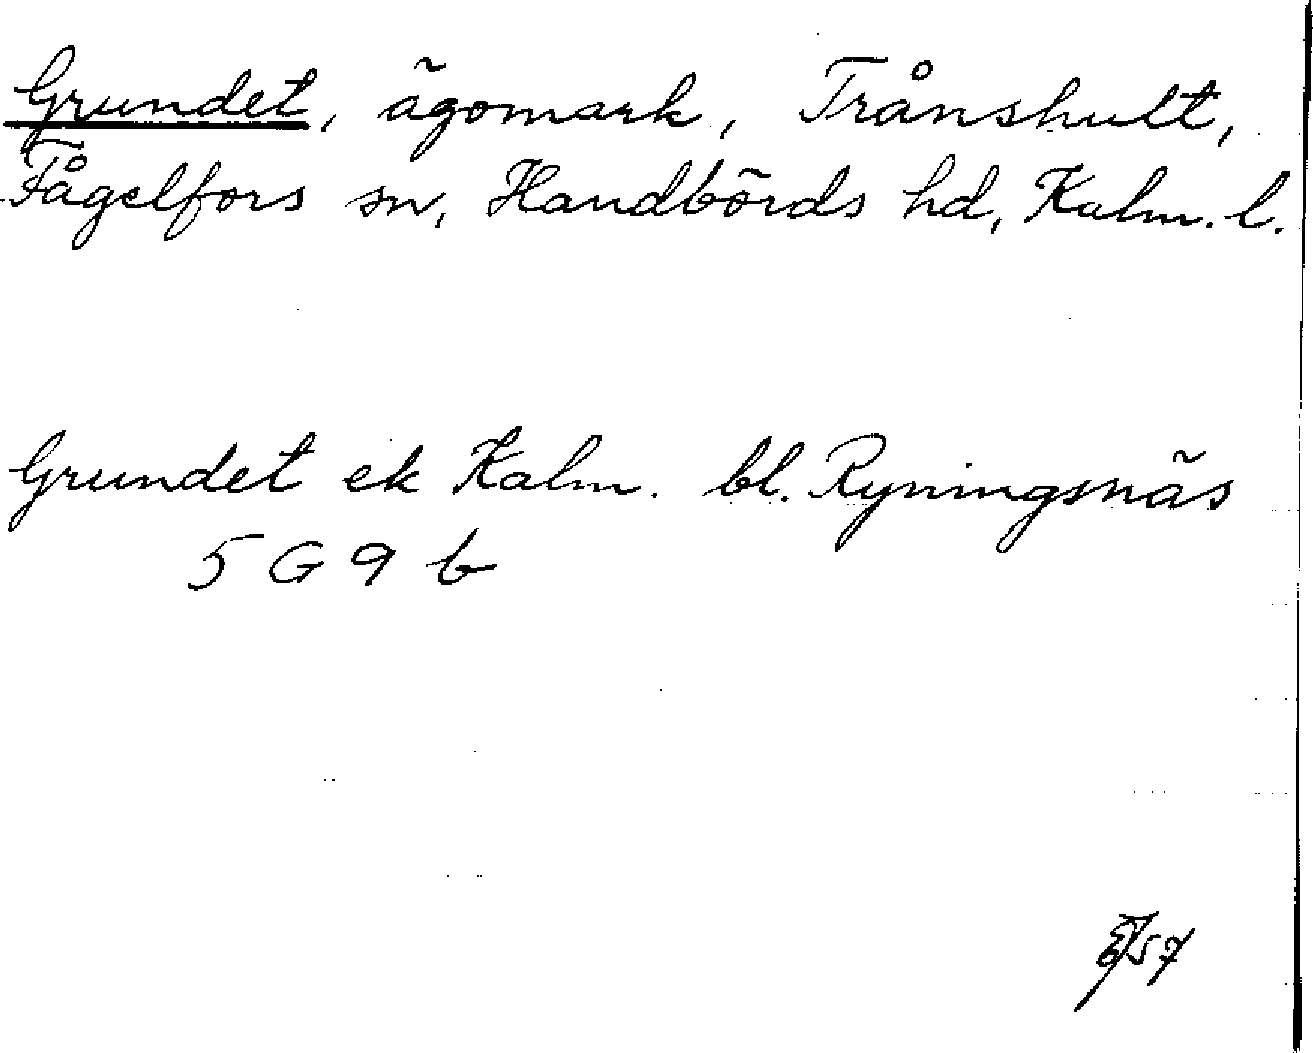 Grundet, ägomark, Trånshult,
Fågelfors sn, Handbörds hd, Kalm. l.
Grundet ek Kalm. bl. Ryningsnäs
5 G 9 b
57